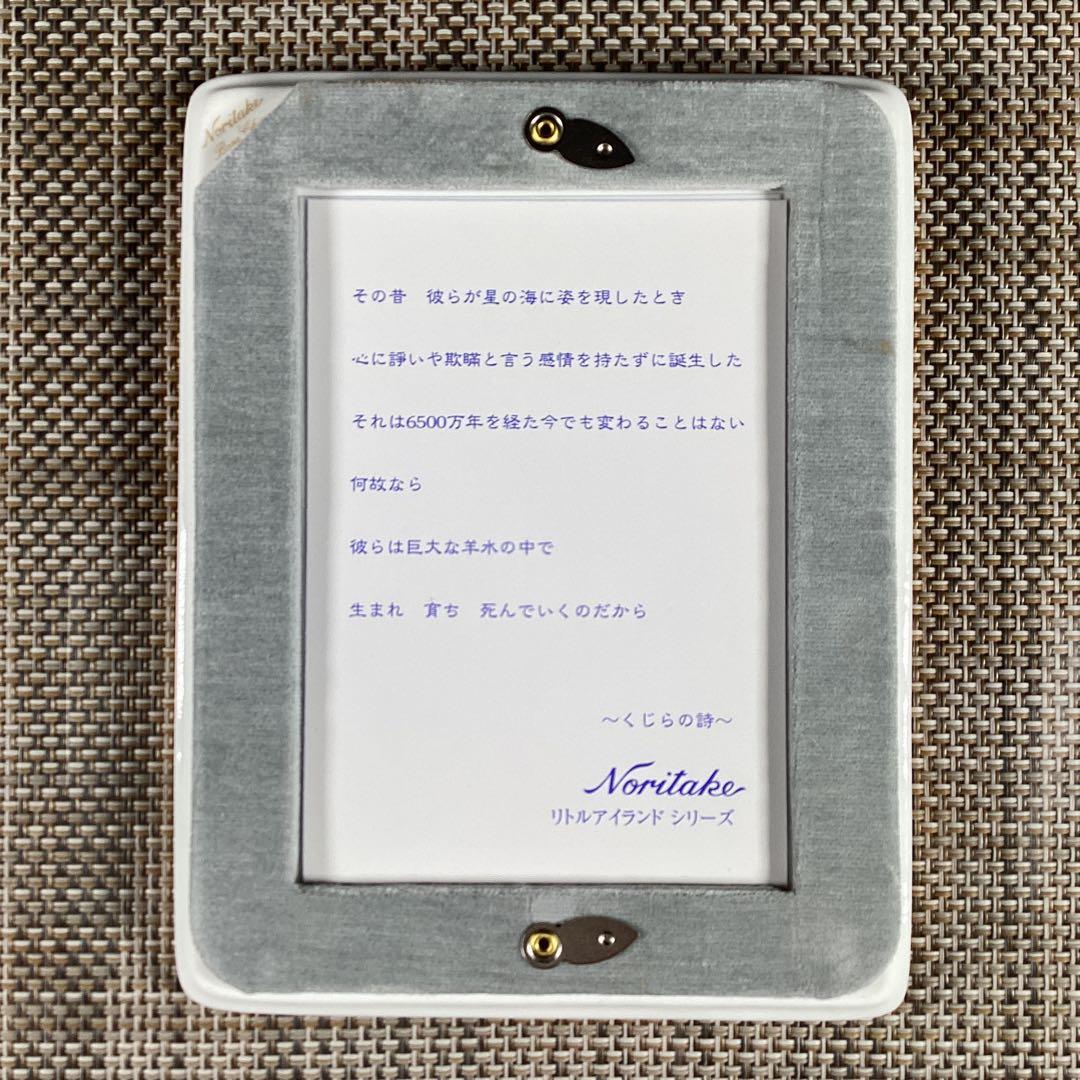 Noritake
その昔　彼らが星の海に姿を現したとき
心に諍いや欺瞞と言う感情を持たずに誕生した
それは6500万年を経た今でも変わることはない
何故なら
彼らは巨大な羊水の中で
生まれ　育ち　死んでいくのだから
〜くじらの詩〜
Noritake
リトルアイランド シリーズ